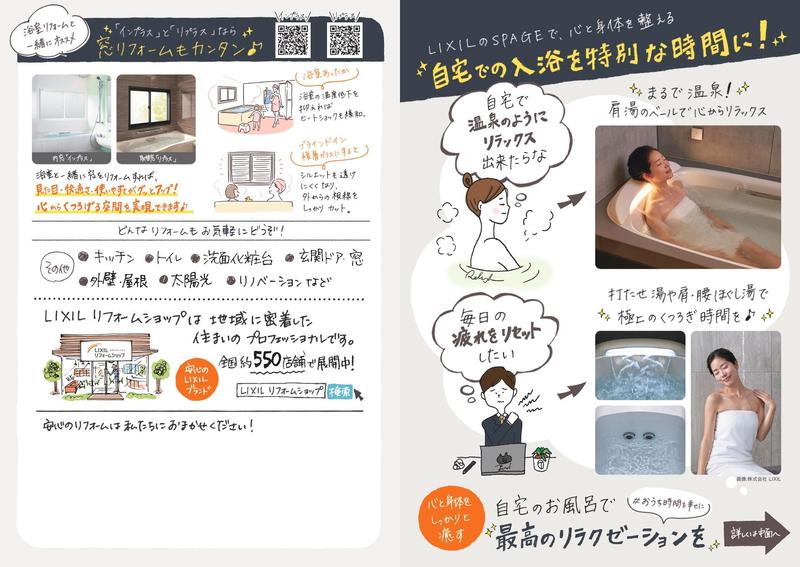 浴室リフォームと
一緒にオススメ
「インプラス」と「リプラス」なら
窓リフォームもカンタン♪
インプラス
リプラス
内窓「インプラス」
取替窓「リプラス」
浴室あったか
浴室の温度低下を
抑えれば
ヒートショックも緩和。
ブラインドイン
複層ガラスにすると
シルエットも透け
にくくなり、
外からの視線を
しっかりカット。
浴室と一緒に窓をリフォームすれば、
見た目・快適さ・使いやすさがグッとアップ!
心からくつろげる空間を実現できます♪
どんなリフォームもお気軽にどうぞ!
その他
●キッチン ●トイレ ●洗面化粧台 ●玄関ドア・窓
●外壁・屋根 ●太陽光 ●リノベーションなど
LIXILリフォームショップは地域に密着した
住まいのプロフェッショナルです。
全国約550店舗で展開中!
LIXIL
リフォームショップ
安心の
LIXIL
ブランド
LIXILリフォームショップ 検索
安心のリフォームは私たちにおまかせください!
LIXILのSPAGEで、心と身体を整える
自宅での入浴を特別な時間に!
自宅で
温泉のように
リラックス
出来たらな
まるで温泉!
肩湯のベールで心からリラックス
Relax
毎日の
疲れをリセット
したい
打たせ湯や肩・腰ほぐし湯で
極上のくつろぎ時間を♪
画像:株式会社 LIXIL
心と身体を
しっかりと
癒す
自宅のお風呂で
#おうち時間を幸せに
最高のリラクゼーションを
詳しくは中面へ